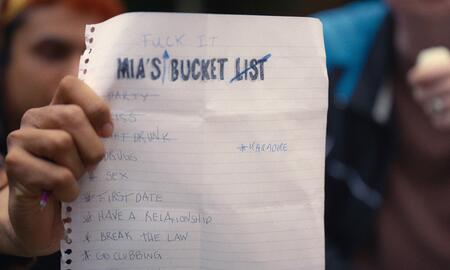 FUCK IT
MIA'S BUCKET LIST
PARTY
KISS
GET DRUNK
DRUGS
#KARAOKE
* SEX
* FIRST DATE
* HAVE A RELATIONSHIP
* BREAK THE LAW
* GO CLUBBING